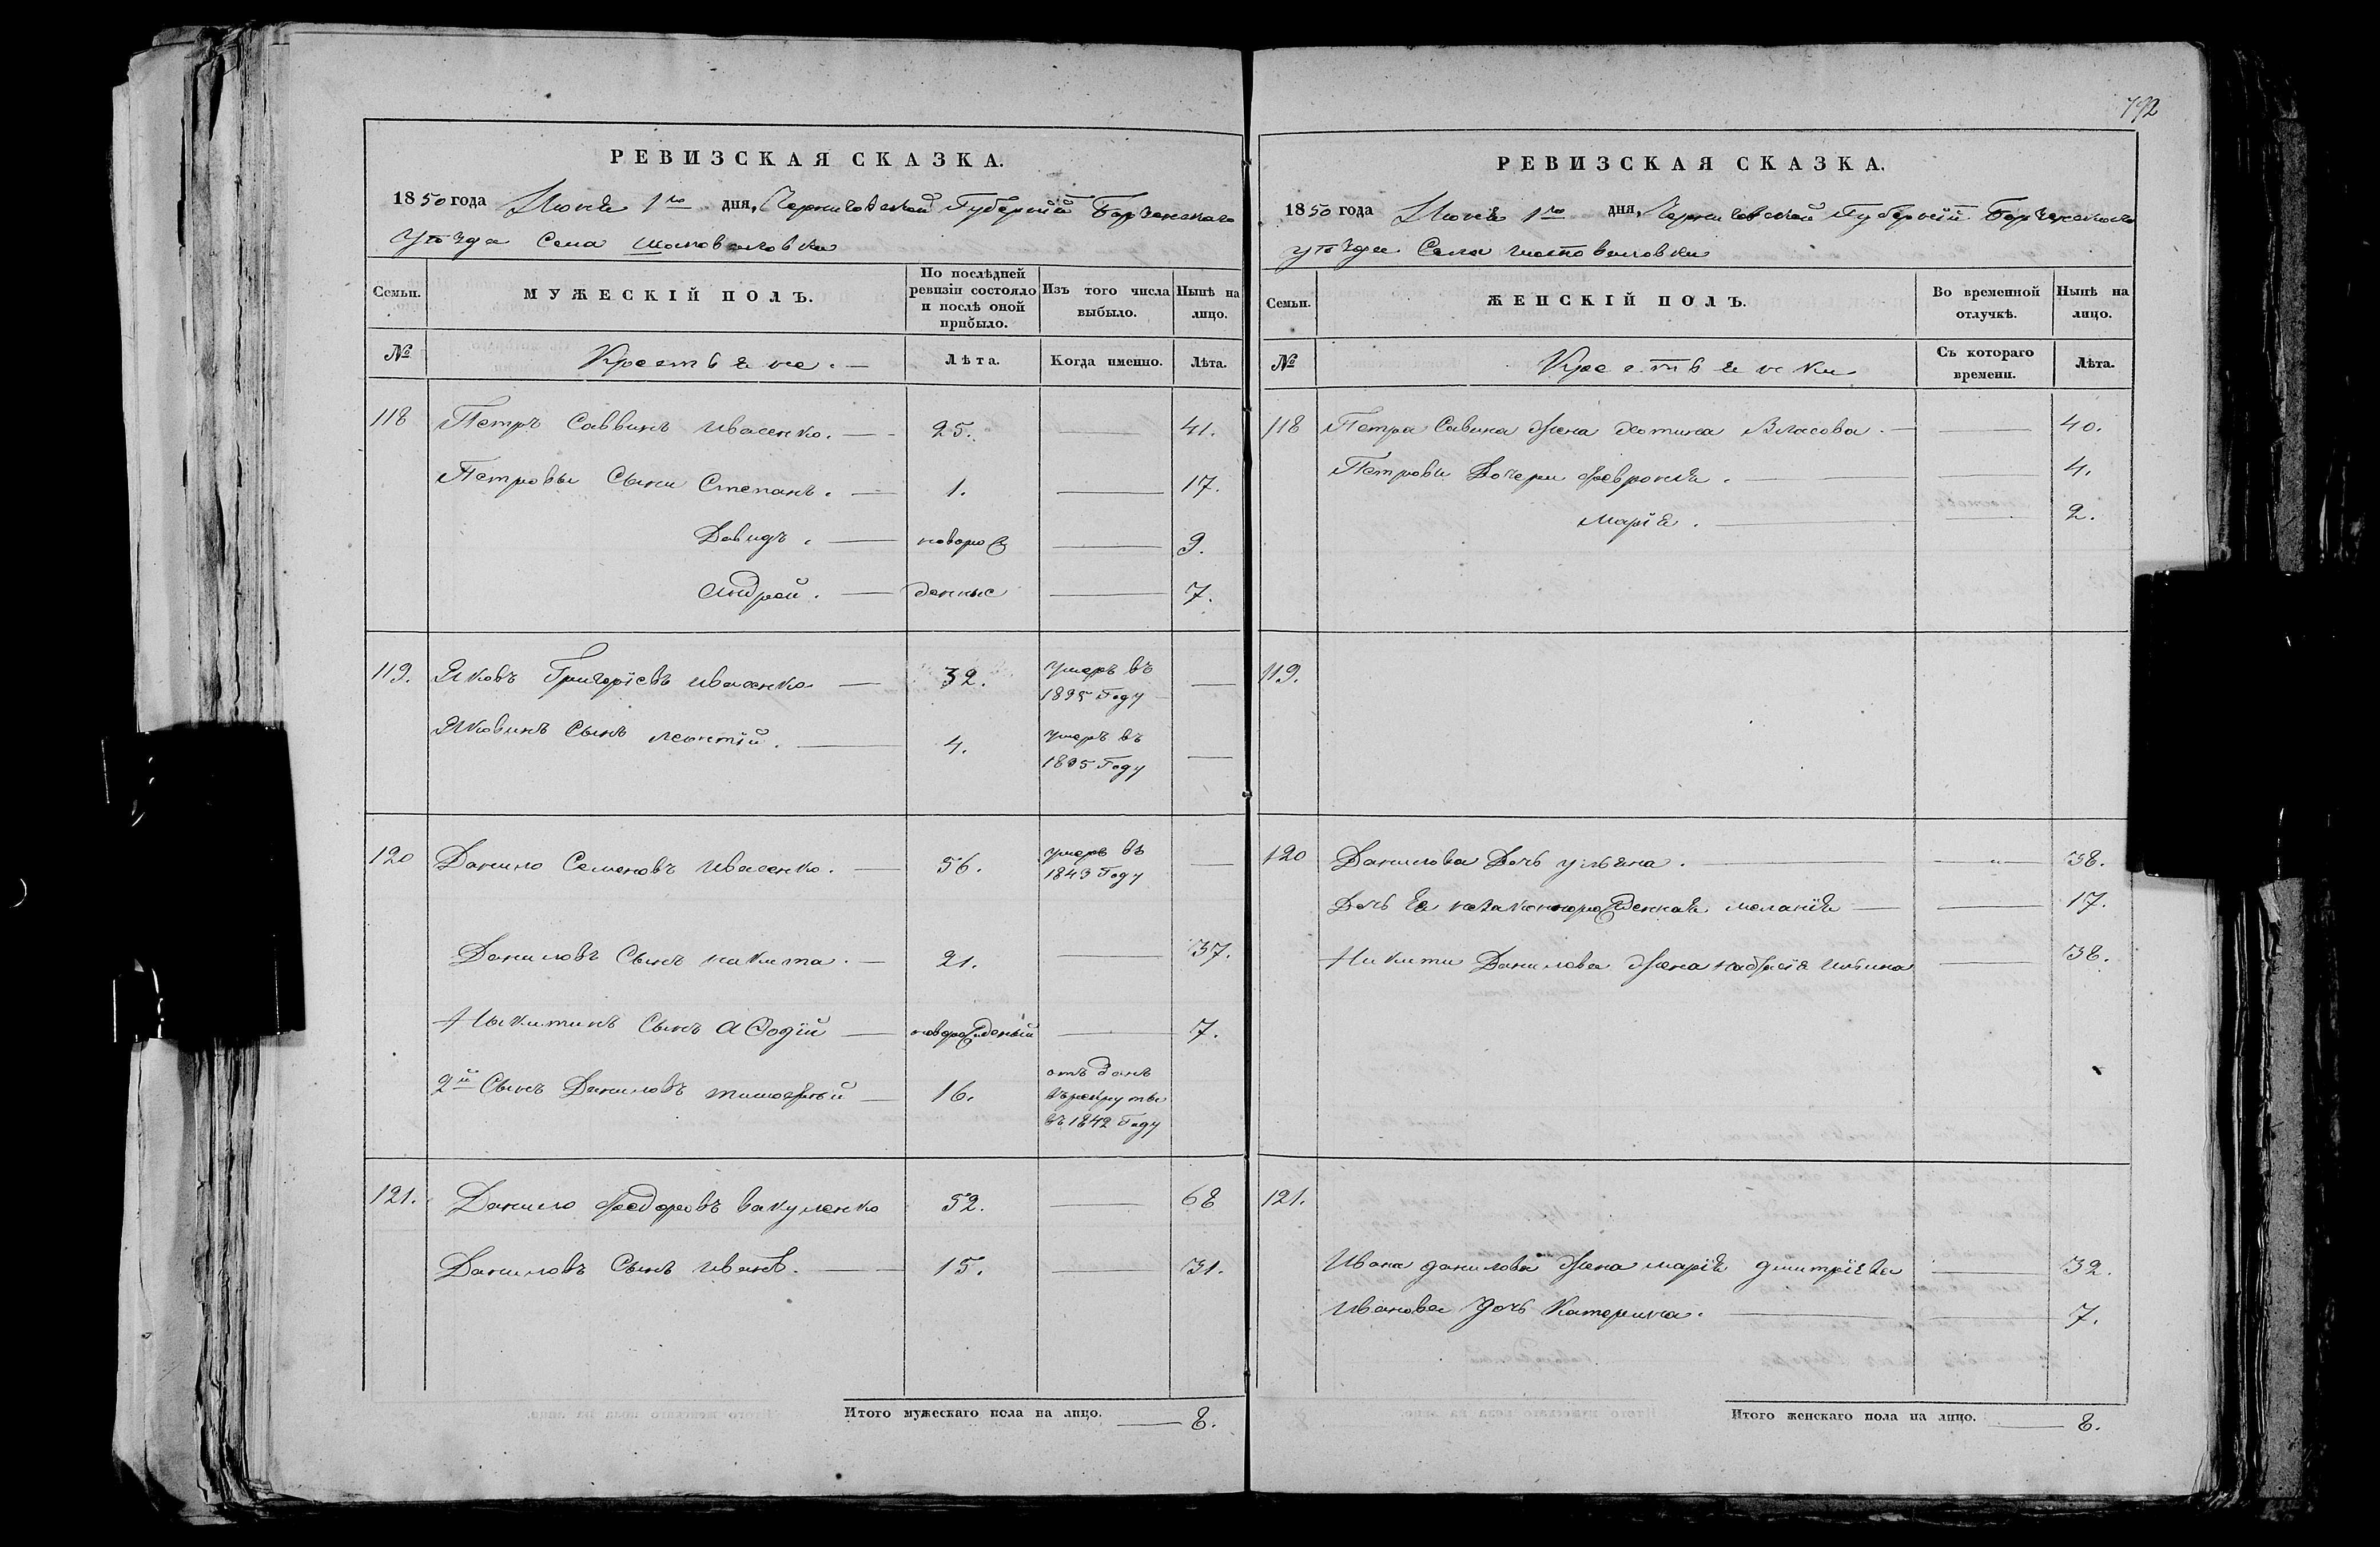 РЕВИЗСКАЯ СКАЗКА.
1850 года Июня 1го дня, Черниговской Губерній Борзенскаго
Уѣзда Села Шаповаловки
Семьи. МУЖЕСКІЙ ПОЛЪ. По послѣдней ревизіи состояло и послѣ оной прибыло. Изъ того числа выбыло. Нынѣ на лицо.
№ Крестьяне. Лѣта. Когда именно. Лѣта.
118 Петръ Саввинъ Ивасенко. 25. 41.
Петровы Сыни Степанъ. 1. 17.
Давидъ. новорож 9.
Андрей. денные 7.
119. Яковъ Григоріевъ Ивасенко 32. умеръ въ 1835 Году
Яковинъ Сынъ Леонтій. 4. умеръ въ 1835 Году
120 Данило Семеновъ Ивасенко. 56. умеръ въ 1843 Году
Даниловъ Сынъ никита. 21. 37.
Ныкитинъ Сынъ Афодій новорожденый 7.
2й Сынъ Даниловъ тимофтій 16. отъ данъ въ рекруты въ 1842 Году
121. Данило Федоровъ Вакуленко 52. 68
Даниловъ Сынъ Иванъ. 15. 31.
Итого мужескаго пола на лицо. 8.
792
РЕВИЗСКАЯ СКАЗКА.
1850 года Июня 1го дня, Черниговской Губерній Борзенскаго
уѣзда Села шаповаловки
Семьи. ЖЕНСКІЙ ПОЛЪ. Во временной отлучкѣ. Нынѣ на лицо.
№ Крестьянки Съ котораго времени. Лѣта.
118 Петра Савина жена Хотина Власова. 40.
Петрови Дочери Февронія. 4.
Марія. 2.
119.
120 Данилова Дочь ульяна. 38.
Дочь Ея незаконнорожденная меланія 17.
Никити Данилова жена надежда Ильина 38.
121.
Ивана данилова жена марія дмитріева 32.
Иванова дочь Катерина. 7.
Итого женскаго пола на лицо. 8.